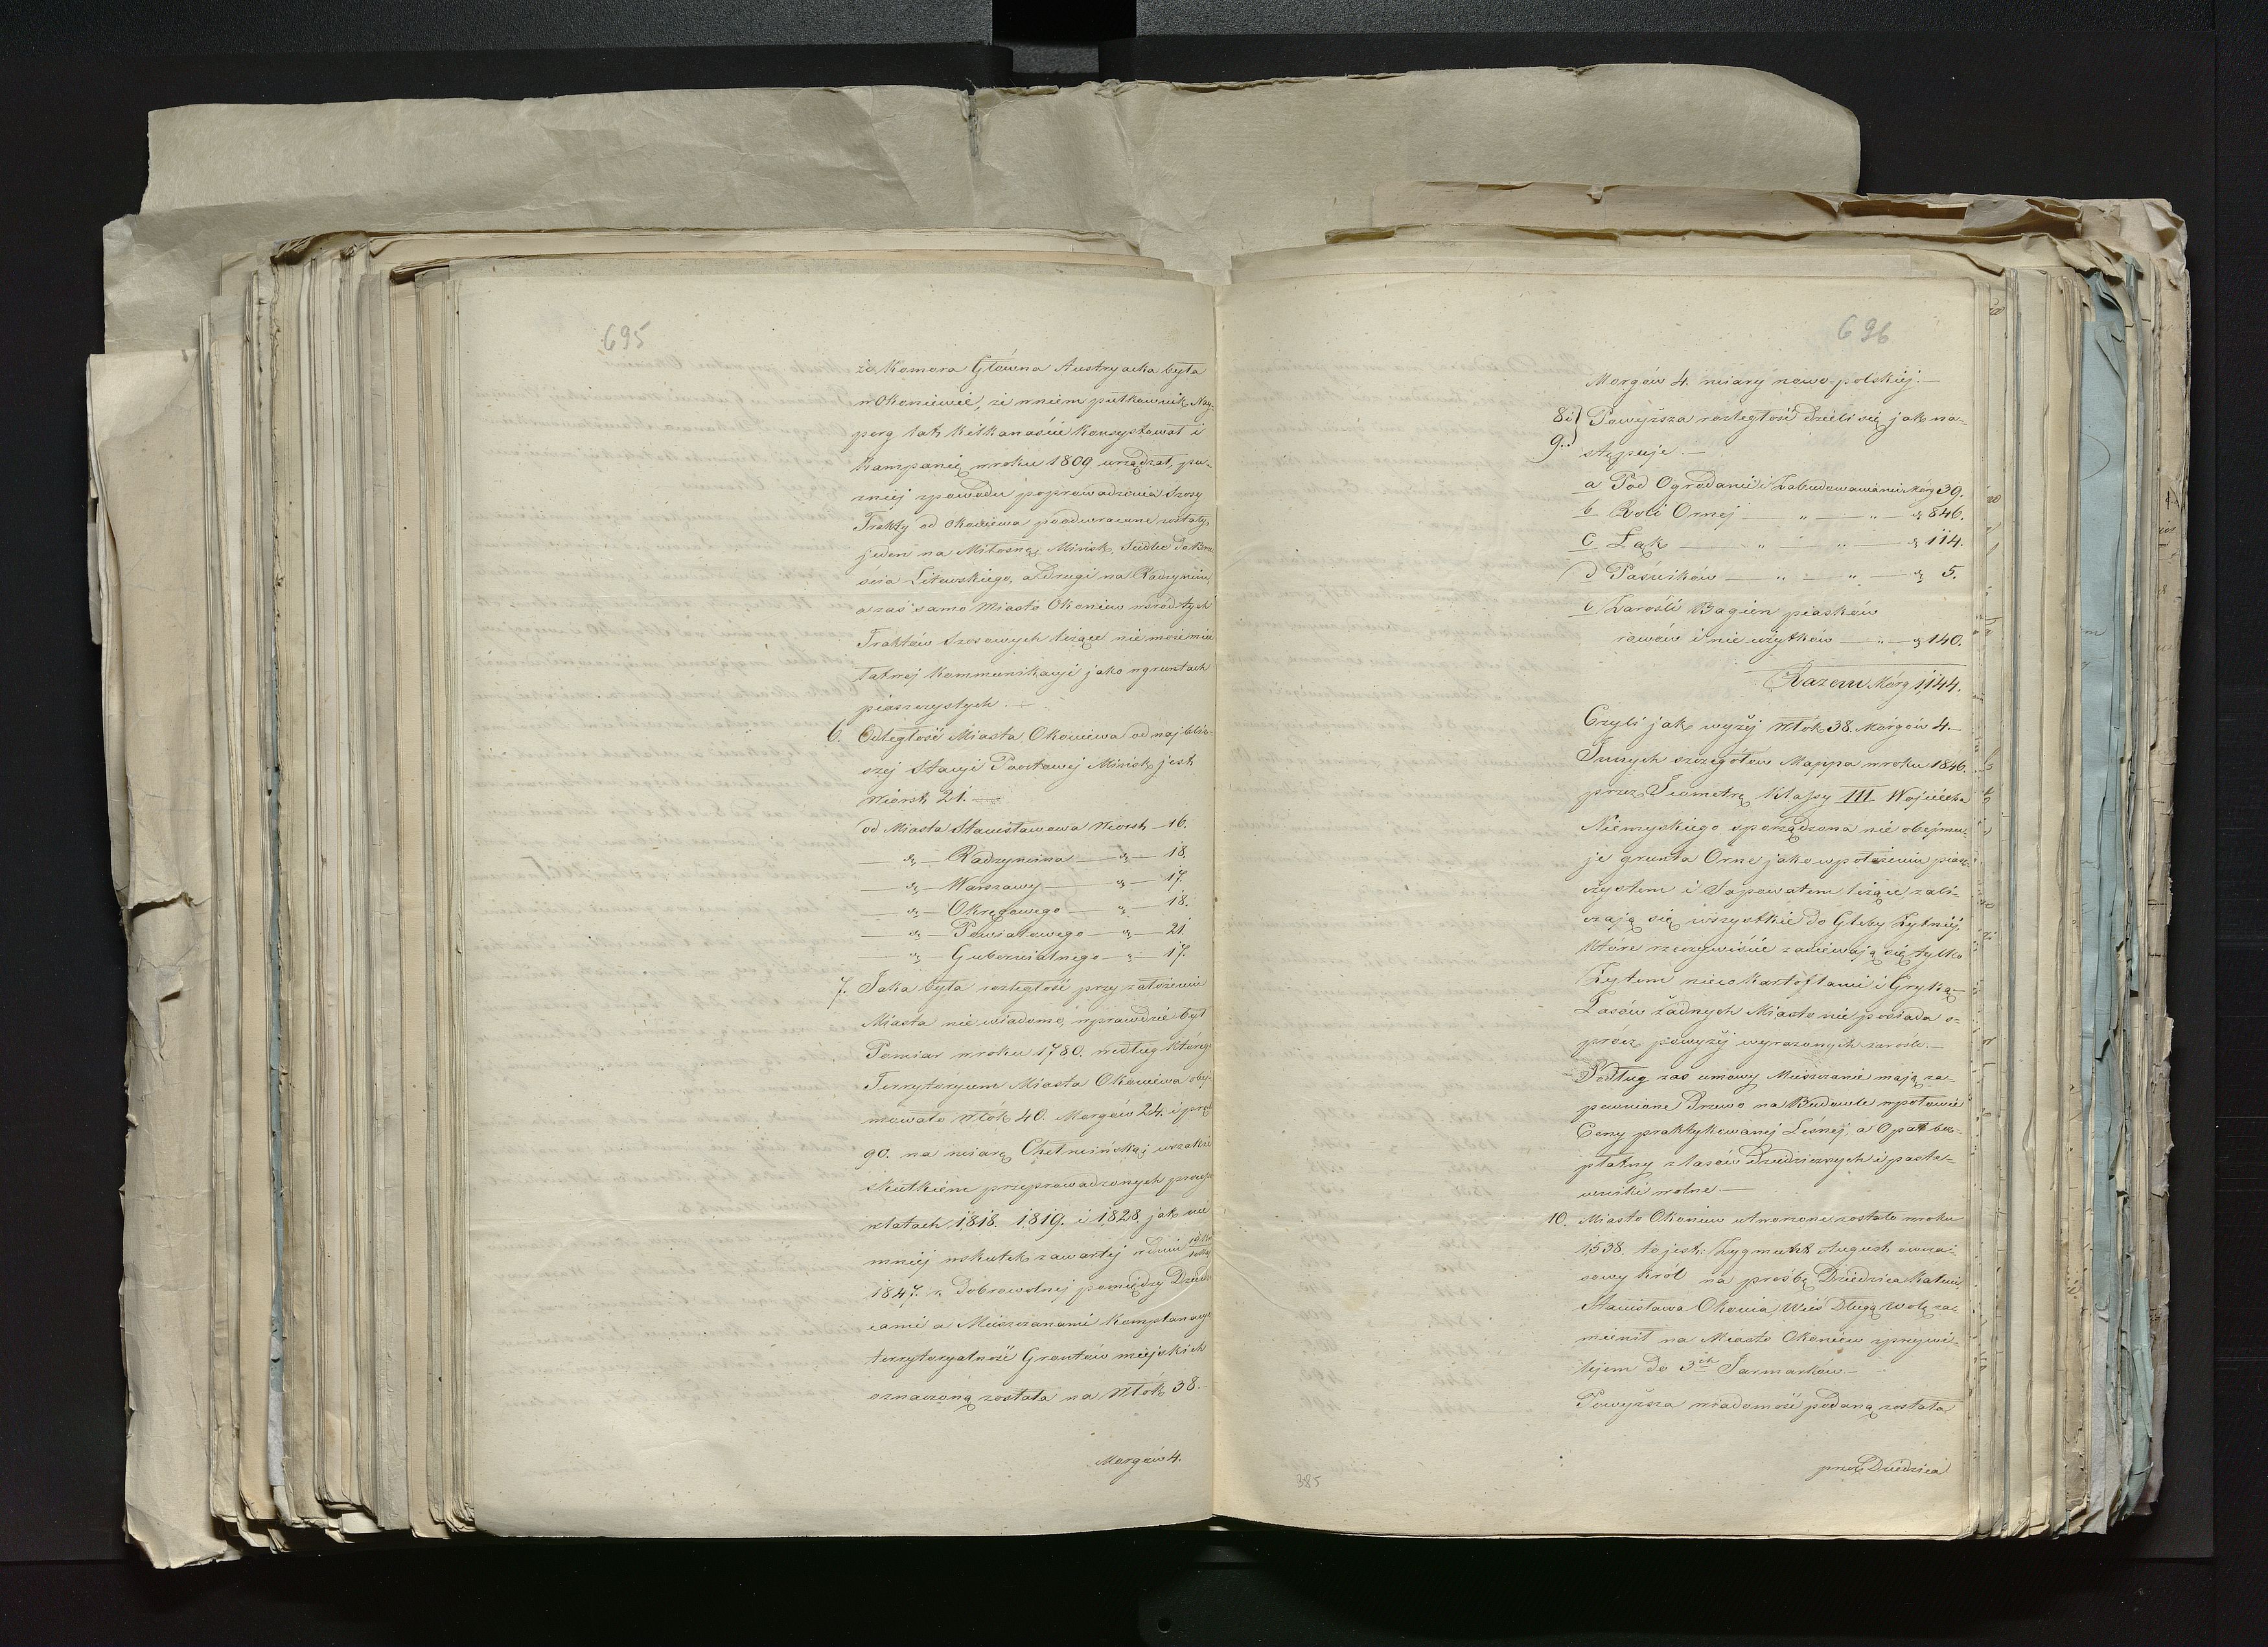 695
że Komora Główna Austryacka była
w Okoniewie, że w niem pułkownik Ney-
perg lat kilkanaście konsystował i
kampanię w roku 1809 urządzał, pu-
zniej z powodu poprowadzenia Szosy
Trakty od Okoniewa poodwracane zostały,
jeden na Miłosnę, Mińsk, Siedlce do Brze
ścia Litewskiego, a drugi na Radzymin,
a zaś samo Miasto Okoniew wśród tych
Traktów Szosowych leżące nie może mieć
łatwej kommunikacyi jako w gruntach
piaszczystych. —
6. Odległość Miasta Okoniewa od najbliż-
szej Stacyi Pocztowej Mińsk jest
Wiorst 21. —
od Miasta Stanisławowa Wiorst — 16.
— „ — Radzymina — „ — 18.
— „ — Warszawy — „ — 17.
— „ — Okręgowego — „ — 18.
— „ — Powiatowego — „ — 21.
— „ — Gubernialnego — „ — 17.
7. Jaka była rozległość przy założeniu
Miasta nie wiadomo, wprawdzie był
Pomiar w roku 1780. według którego
Terrytoryum Miasta Okoniewa obej-
mowało Włók 40. Morgów 24. i pręt
90. na miarę Chełmińską; wszakże
skutkiem przeprowadzonych process
w latach 1818. 1819. i 1828. jak nie
mniej w skutek zawartej w dniu
1847. r. dobrowolnej pomiędzy Dziedzi
cami a Mieszczanami Komplanacyi
terrytoryalność Gruntów miejskich
oznaczoną została na Włók 38. —
Morgów 4.
696
Morgów 4. miary nowo polskiej. —
8 i 9. Powyższa rozległość dzieli się jak na-
stępuje. —
a Pod Ogrodami i Zabudowaniami Mórg 39.
b Roli Ornej — „ — „ — „ 846.
c Łąk — „ — „ — „ 114.
d Pastwików — „ — „ — „ 5.
e Zarośli Bagien piasków
rowów i nie użytków — „ — „ 140.
Razem Mórg 1,144.
Czyli jak wyżej Włók 38. Morgów 4. —
Innych szczegółów Mappa w roku 1846.
przez Geometrę Klassy III Wojciecha
Niemyskiego sporządzona nie obejmu-
je grunta Orne jako w położeniu piasz-
czystem i Sapowatem leżące, zali-
czają się wszystkie do Gleby Żytniej,
które rzeczywiście zasiewają się tylko
Żytem nieco kartoflami i Gryką —
Lasów żadnych Miasto nie posiada o-
prócz powyżej wyrażonych zarośli. —
Podług zaś umowy Mieszczanie mają za-
pewnione Drzewo na Budowle w połowie
Ceny praktykowanej Leśnej, a Opał bez-
płatny z lasów Dziedzicznych i paste-
wniki wolne. —
10. Miasto Okoniew utworzone zostało w roku
1538. to jest: Zygmunt August ówcze-
sowy Król na prośbę Dziedzica
Stanisława Okonia Wieś Długą Wolę za-
mienił na Miasto Okoniew z przywi-
lejem do 3ch Jarmarków —
Powyższa wiadomość podaną została
przez Dziedzica
385